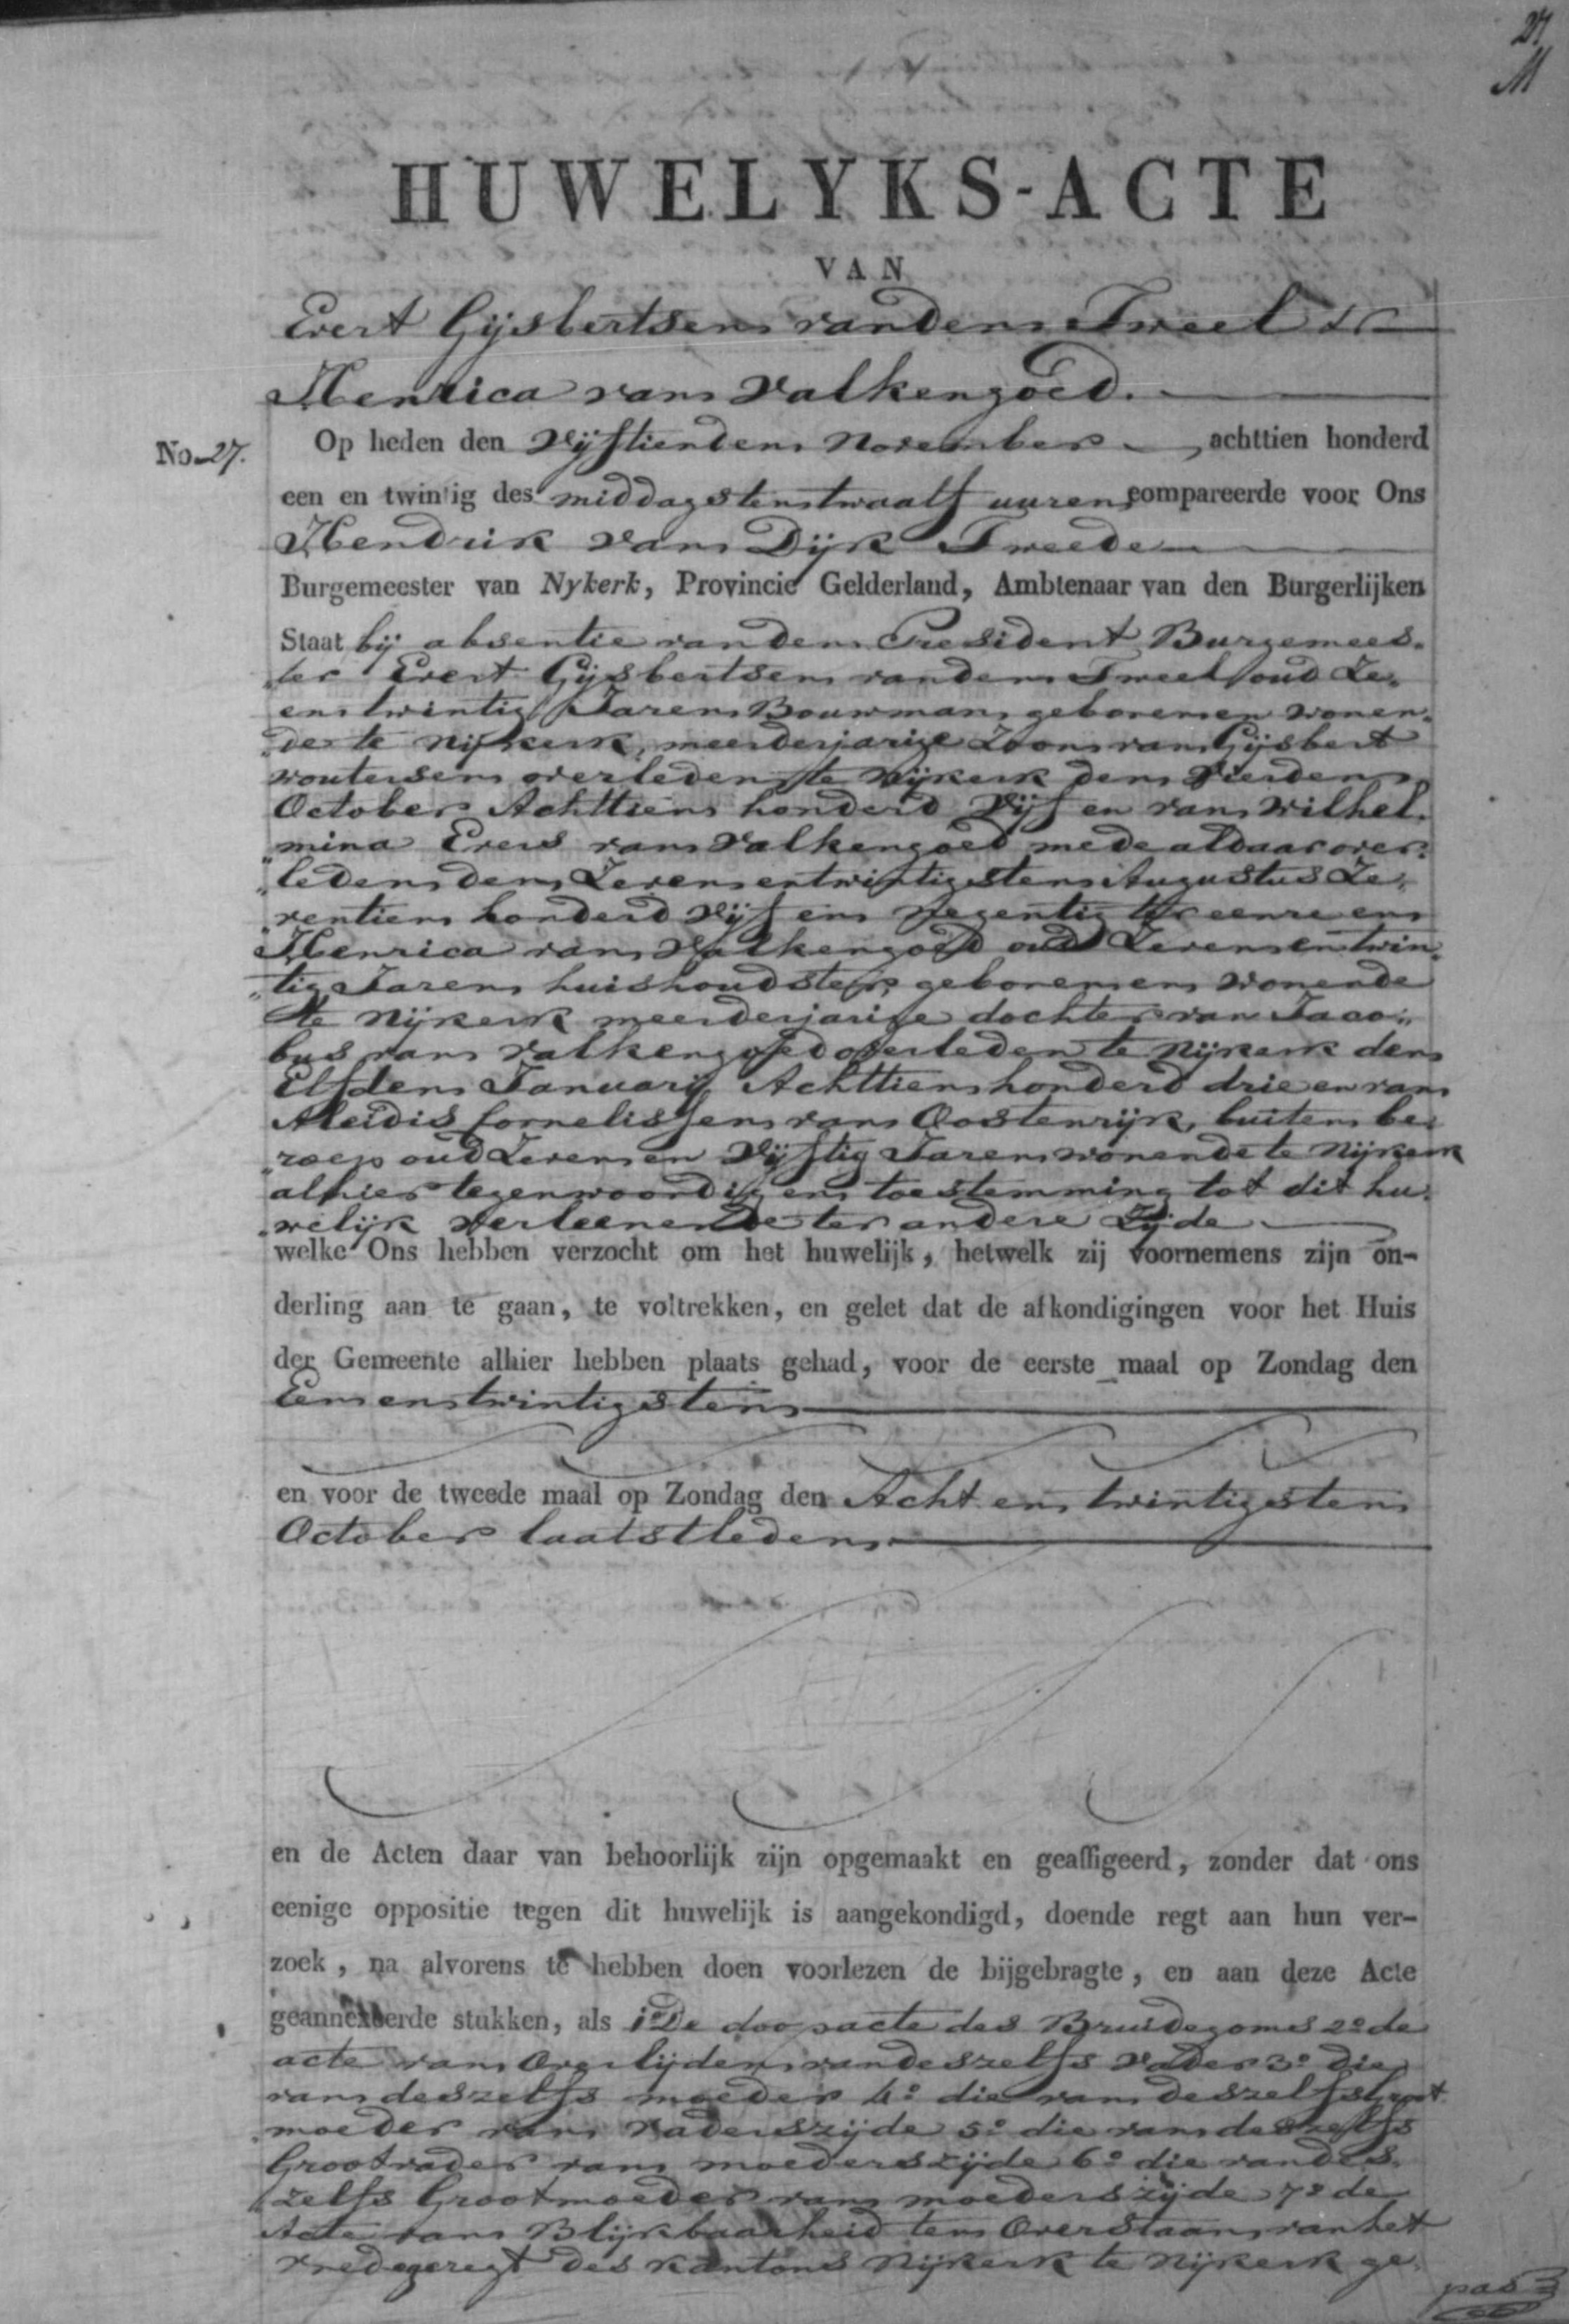 27
M
HUWELYKS-ACTE
VAN
Evert Gijsbertsen van den Tweel &
Henrica van Valkengoed.
No. 27. Op heden den Vijftienden November, achttien honderd
een en twintig des middags ten twaalf uuren, compareerde voor Ons
Hendrik van Dijk Tweede
Burgemeester van Nykerk, Provincie Gelderland, Ambtenaar van den Burgerlijken
Staat bij absentie van den President Burgemees-
„ter Evert Gijsbertsen van den Tweel oud Ze-
en twintig Jaren Bouwman, geboren en wonen-
„de te Nijkerk, meerderjarige Zoon van Gijsbert
Woutersen overleden te Nijkerk den Vierden
October Achttien honderd Vijf en van Wilhel-
„mina Evers van Valkengoed mede aldaar over-
„leden den Zeven en twintigsten Augustus Ze-
„ventien honderd Vijf en Negentig ter eenre en
Henrica van Valkengoed oud Zeven en twin-
„tig Jaren huishoudster, geboren en wonende
te Nijkerk meerderjarige dochter van Jaco-
bus van Valkengoed overleden te Nijkerk den
Elfden Januarij Achttien honderd drie en van
Aleidis Cornelissen van Oostenrijk, buiten be-
„roep oud Zeven en Vijftig Jaren wonende te Nijkerk
alhier tegenwoordig en toestemming tot dit hu-
„welijk verleenende ter andere Zijde
welke Ons hebben verzocht om het huwelijk, hetwelk zij voornemens zijn on-
derling aan te gaan, te voltrekken, en gelet dat de afkondigingen voor het Huis
der Gemeente alhier hebben plaats gehad, voor de eerste maal op Zondag den
Een en twintigsten
en voor de tweede maal op Zondag den Acht en twintigsten
October laatstleden
en de Acten daar van behoorlijk zijn opgemaakt en geaffigeerd, zonder dat ons
eenige oppositie tegen dit huwelijk is aangekondigd, doende regt aan hun ver-
zoek, na alvorens te hebben doen voorlezen de bijgebragte, en aan deze Acte
geannexeerde stukken, als 1º De doopacte des Bruidegoms 2º de
acte van Overlijden van deszelfs Vader 3º die
van deszelfs moeder 4º die van deszelfs Groot-
„moeder van Vaderszijde 5º die van deszelfs
Grootvader van moederszijde 6º die van des-
„zelfs Grootmoeder van moederszijde 7º de
Acte van Blijkbaarheid ten Overstaan van het
Vredegeregt des Kantons Nijkerk te Nijkerk ge-
pas